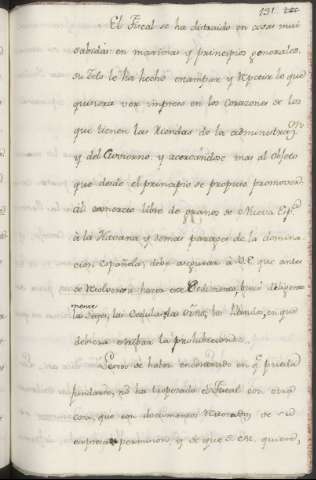 191.
El Fiscal se ha distraido en cosas mui
sabidas en maximas y principios generales.
su Zelo le ha hecho estampar y repetir lo que
quisiera ver impreso en los corazones de los
que tienen las riendas de la administrac.on
y del Govierno y acercandose mas al objeto
que desde el principio se propuso promover
del comercio libre de granos de Nueva Esp.a
à la Havana y demas parages de la domina
cion Española, debe asegurar à V.E. que antes
de hacer este Pedimento, leyó diligente
mente
las Leyes, las Cedulas, las ordñs, los Bandos, en que
debiera estar la prohibicion.
Lexos de haber encontrado en q.e
fundarse, no ha tropezado el Fiscal con otra
cosa, que con documentos de su
expresa permision, y de que se